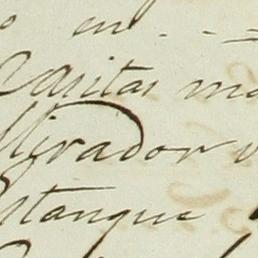 en - - =
Casitas
Mirador
Estanque